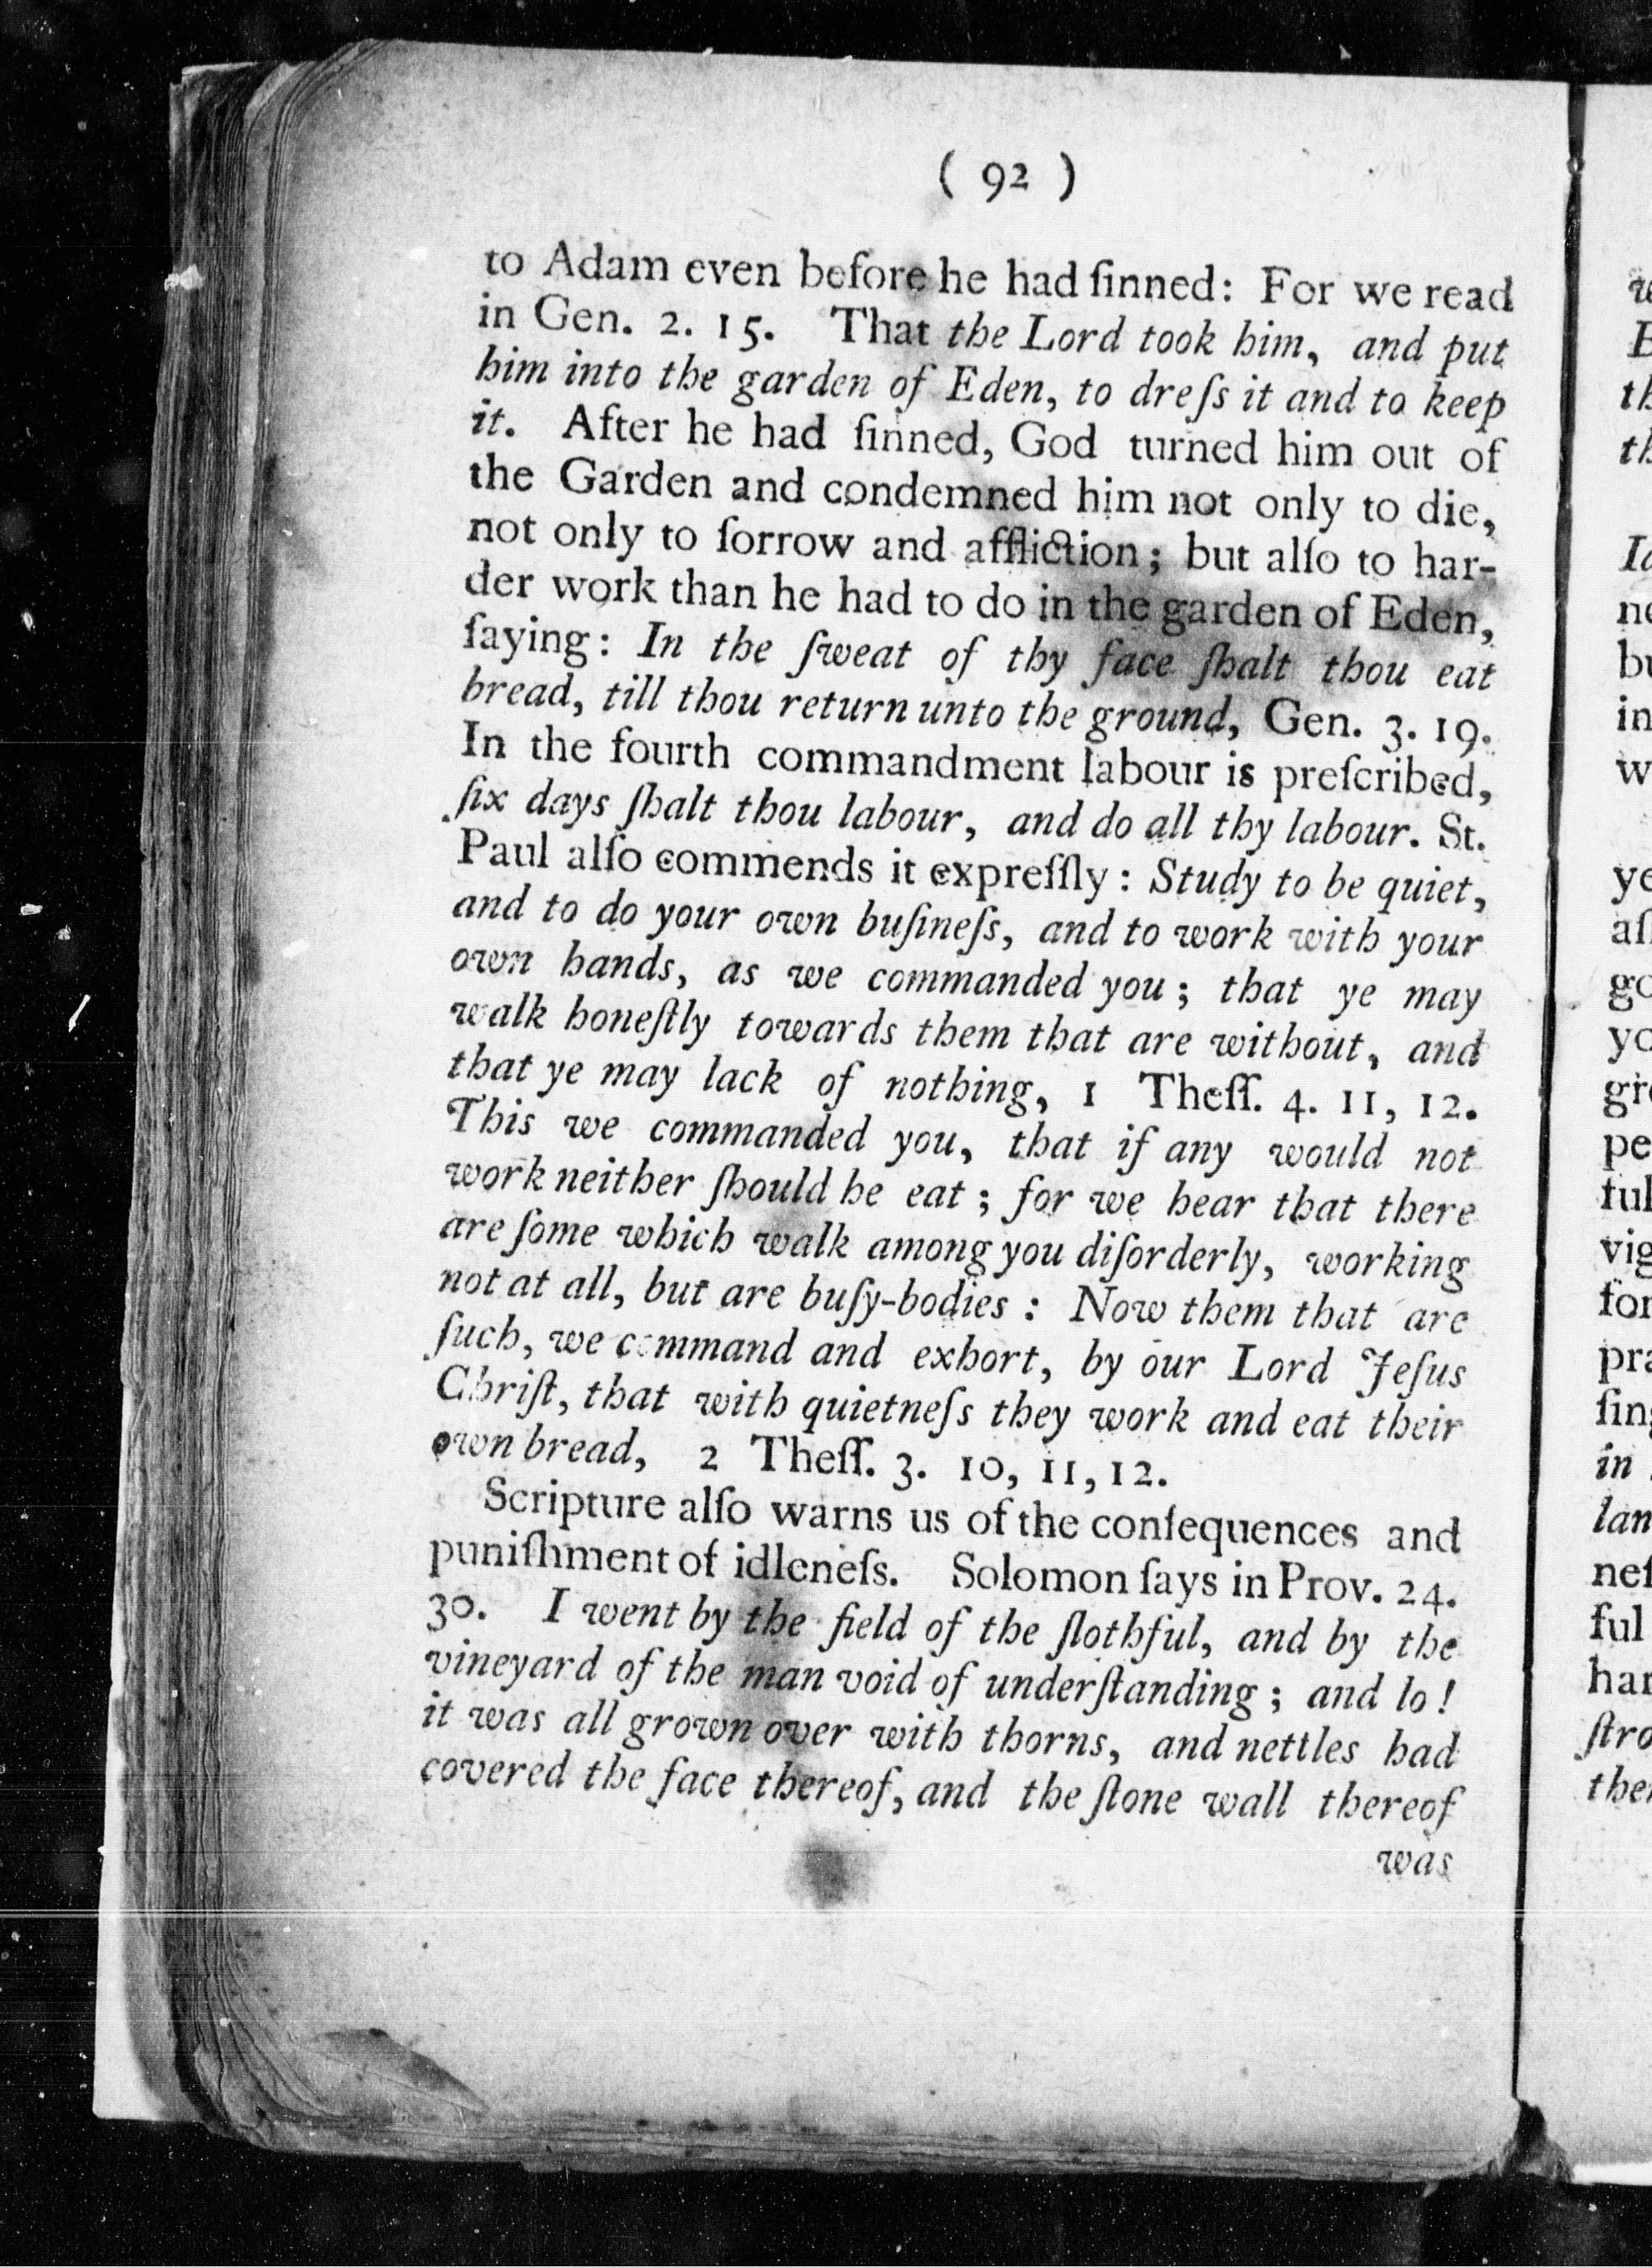 ( 92 )
to Adam even before he had ſinned: For we read
in Gen. 2. 15. That the Lord took him, and put
him into the garden of Eden, to dreſs it and to keep
it. After he had ſinned, God turned him out of
the Garden and condemned him not only to die,
not only to ſorrow and affliction; but alſo to har-
der work than he had to do in the garden of Eden,
ſaying: In the ſweat of thy face ſhalt thou eat
bread, till thou return unto the ground, Gen. 3. 19.
In the fourth commandment labour is preſcribed,
ſix days ſhalt thou labour, and do all thy labour. St.
Paul alſo commends it expreſſly: Study to be quiet,
and to do your own buſineſs, and to work with your
own hands, as we commanded you; that ye may
walk honeſtly towards them that are without, and
that ye may lack of nothing, 1 Theſſ. 4. 11, 12.
This we commanded you, that if any would not
work neither ſhould he eat; for we hear that there
are ſome which walk among you diſorderly, working
not at all, but are buſy-bodies: Now them that are
ſuch, we command and exhort, by our Lord Jeſus
Chriſt, that with quietneſs they work and eat their
own bread, 2 Theſſ. 3. 10, 11, 12.
Scripture alſo warns us of the conſequences and
puniſhment of idleneſs. Solomon ſays in Prov. 24.
30. I went by the field of the ſlothful, and by the
vineyard of the man void of underſtanding; and lo!
it was all grown over with thorns, and nettles had
covered the face thereof, and the ſtone wall thereof
was